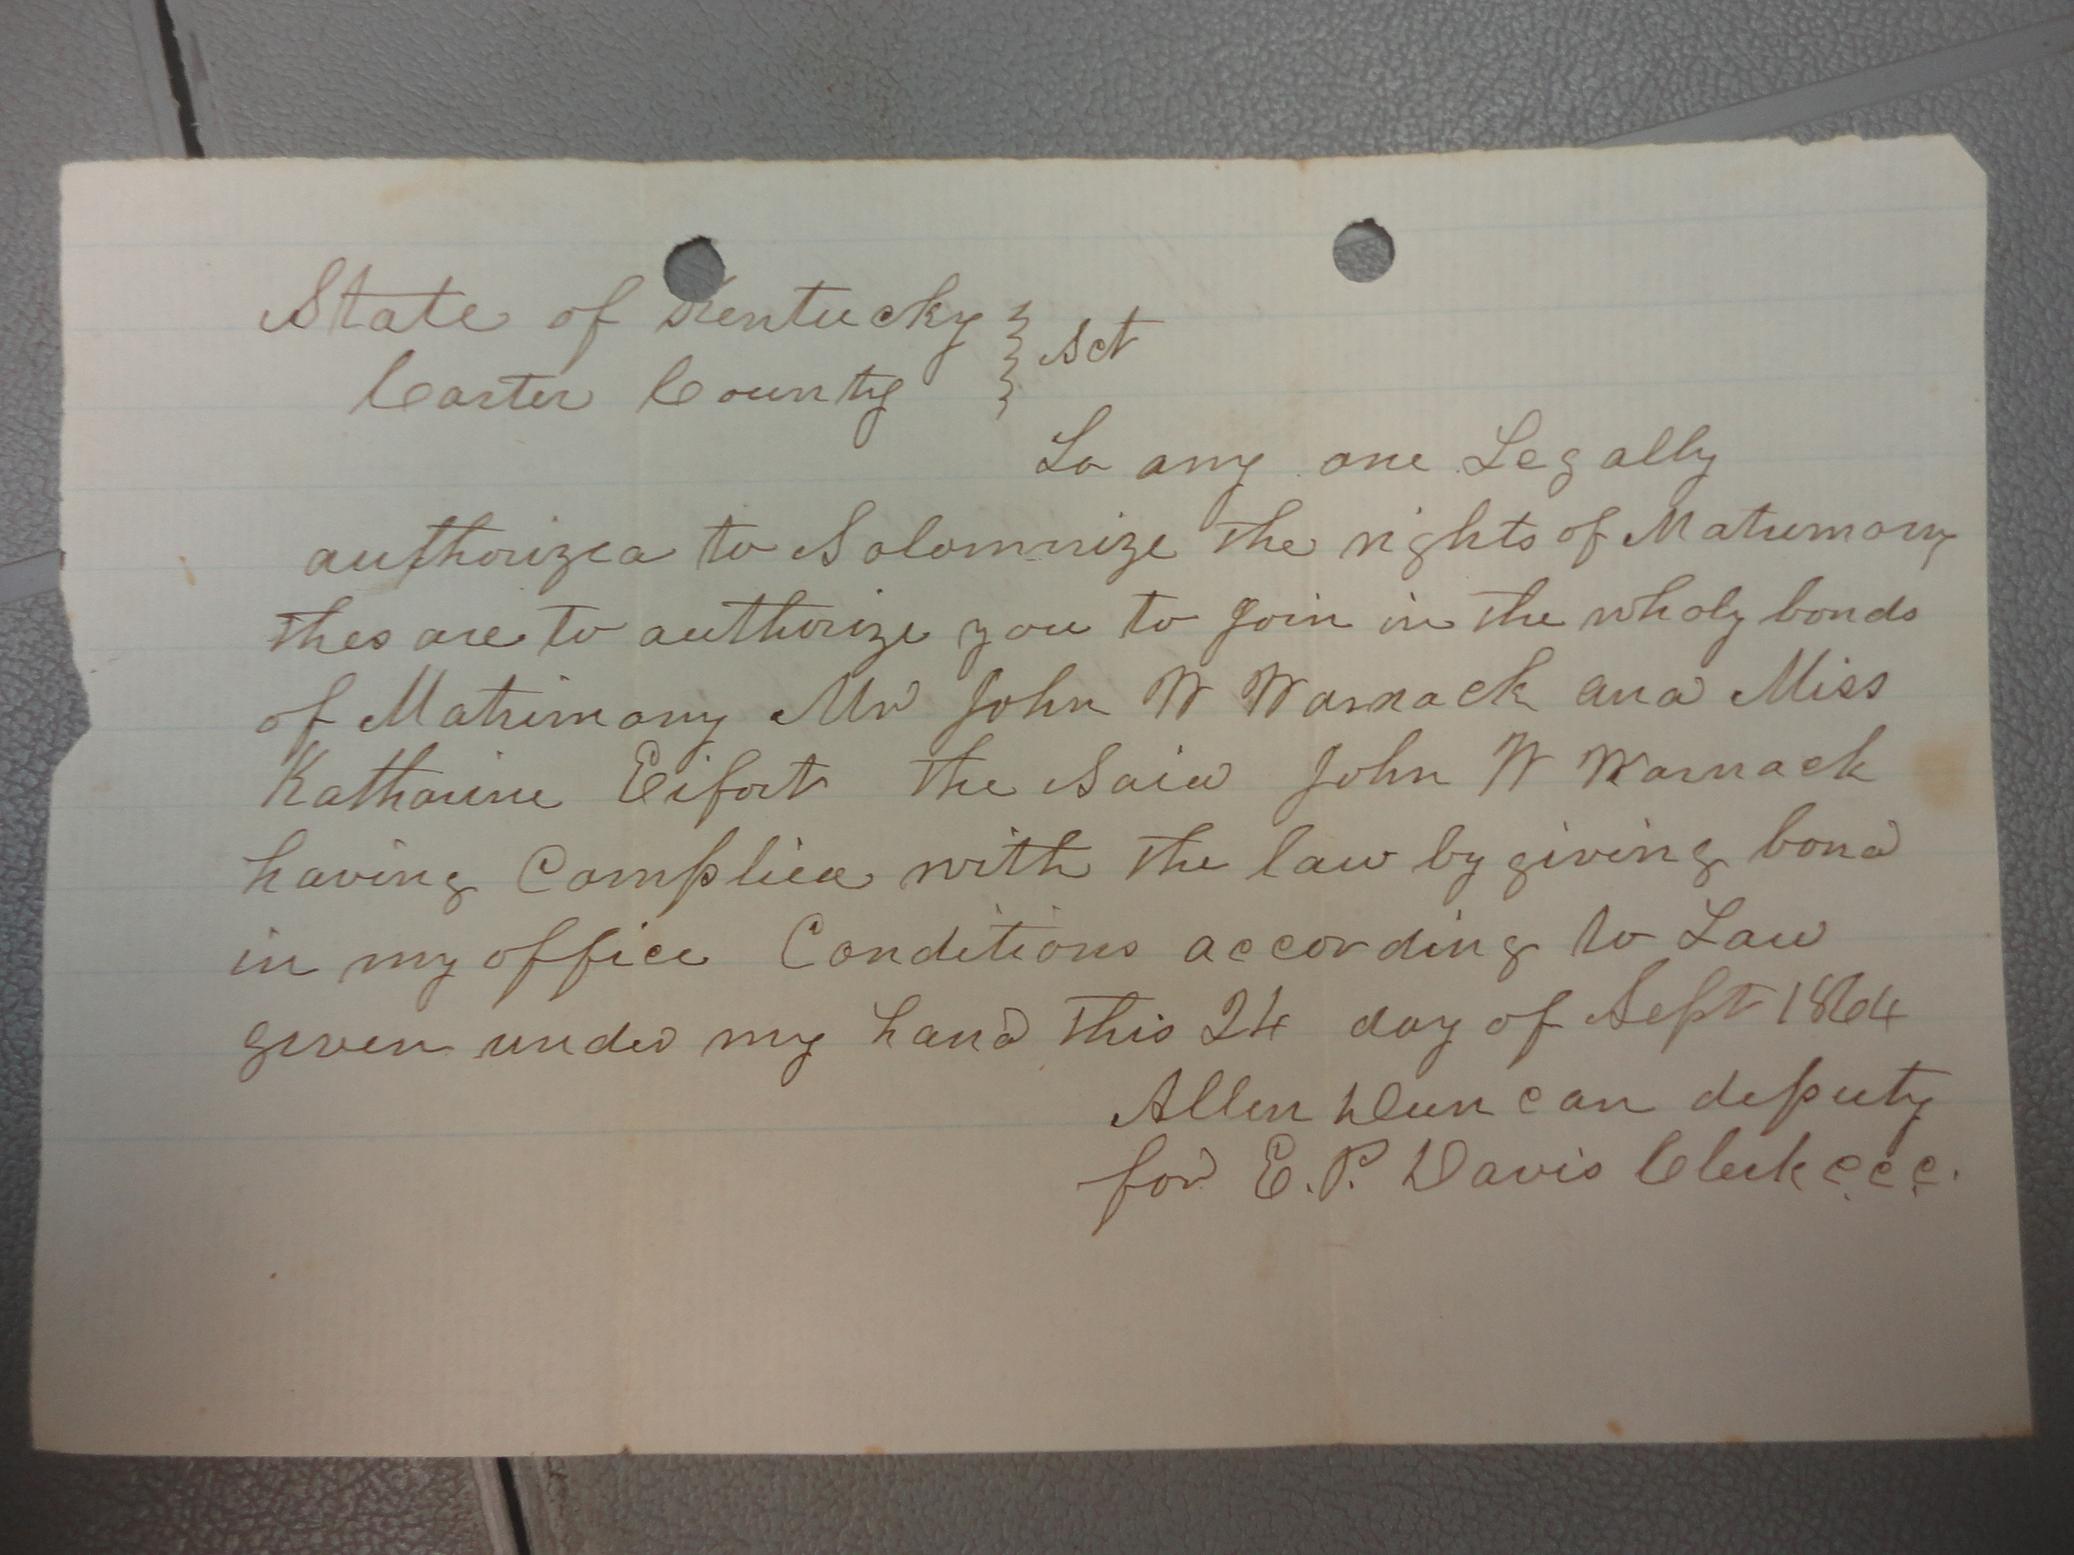 State of Kentucky } Sct
Carter County
To any one Legally
authorized to Solomnize the rights of Matrimony
thes are to authorize you to Join in the wholy bonds
of Matrimony Mr John W Warnack and Miss
Katharine Eifort the Said John W Warnack
having Complied with the law by giving bond
in my office Conditions according to Law
given under my hand this 24 day of Sept 1864
Allen Duncan deputy
for E.P. Davis Clerk C.C.C.